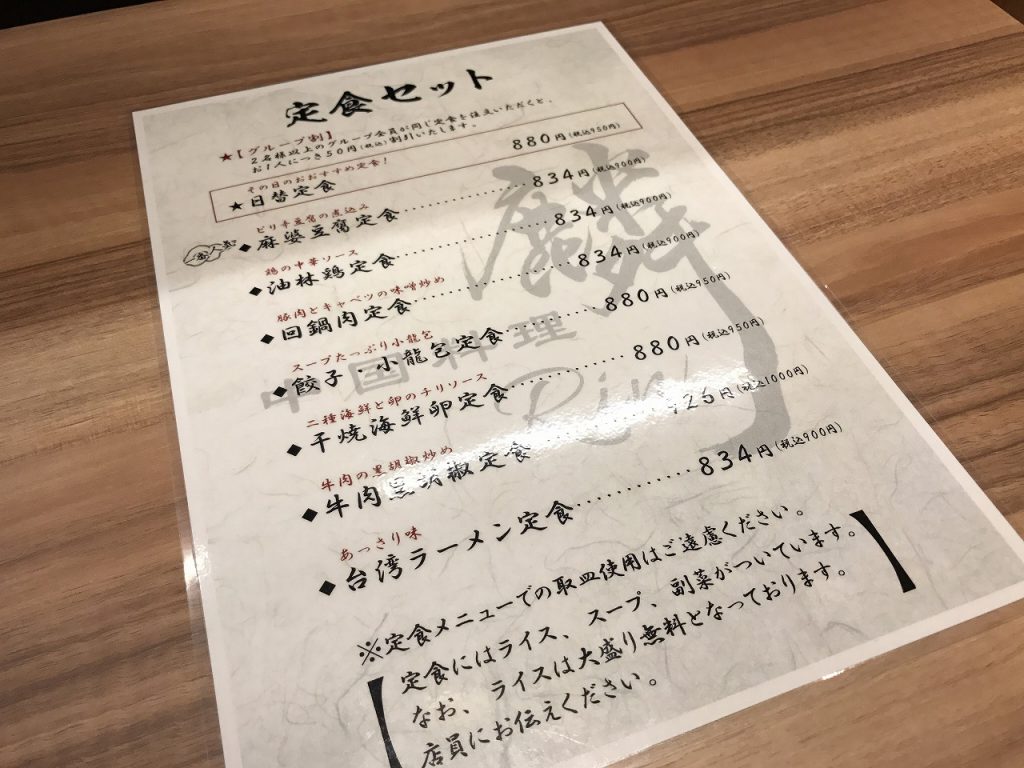 定食セット
★【グループ割】
２名様以上のグループ全員が同じ定食を注文いただくと、
お１人につき５０円(税込)割引いたします。
その日のおすすめ定食！
★日替定食 880円(税込950円)
ピリ辛豆腐の煮込み
◆麻婆豆腐定食 834円(税込900円)
鶏の中華ソース
◆油林鶏定食 834円(税込900円)
豚肉とキャベツの味噌炒め
◆回鍋肉定食 834円(税込900円)
スープたっぷり小龍包
◆餃子・小龍包定食 880円(税込950円)
二種海鮮と卵のチリソース
◆干焼海鮮卵定食 880円(税込950円)
牛肉の黒胡椒炒め
◆牛肉黒胡椒定食 円(税込1000円)
あっさり味
◆台湾ラーメン定食 834円(税込900円)
※定食メニューでの取皿使用はご遠慮ください。
【定食にはライス、スープ、副菜がついています。
なお、ライスは大盛り無料となっております。
店員にお伝えください。】
麟
中国料理
Rin